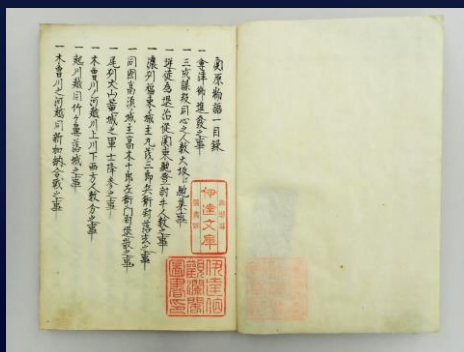 関原物語一目録
一 會津御進發之事
一 三成謀叛同心之人数大坂江馳集事
一 逆徒為退治従関東馳登討手人数之事
一 濃州福束之城主丸茂三郎兵衛尉落去之事
一 同國高須之城主高木十郎左衛門尉退散之事
一 尾州犬山籠城之軍士降参之事
一 木曽川ノ河越川上川下西方人数分之事
一 起川越同竹ヶ鼻落城之事
一 木曽川之河越同新加納合戦之事
伊達文庫
伊達伯
観瀾閣
圖書印